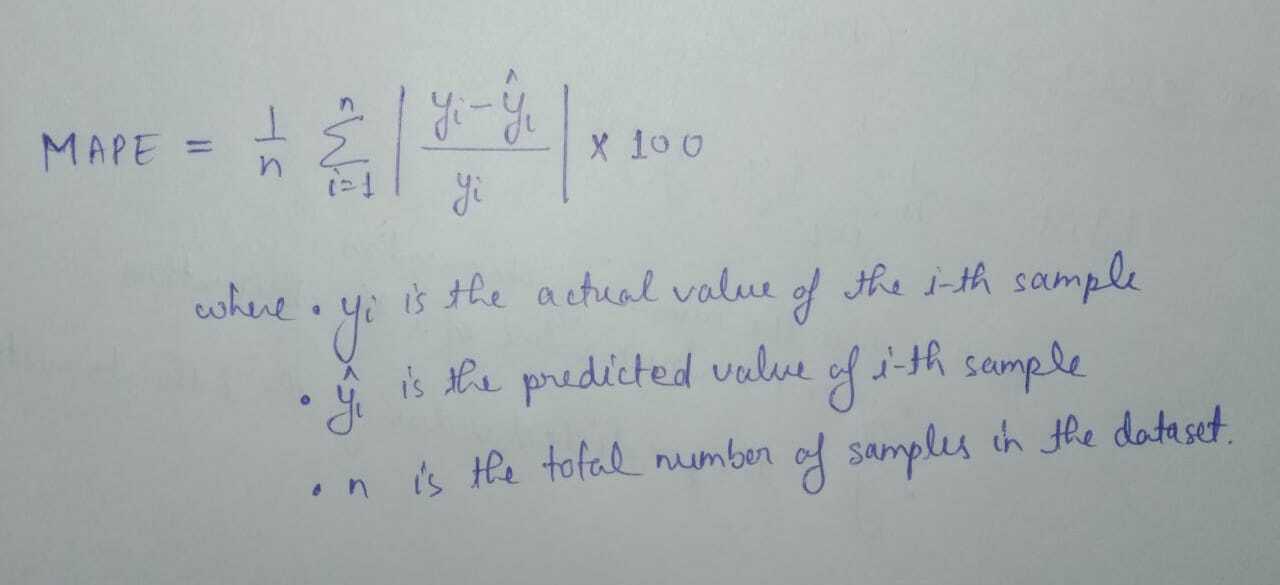 MAPE = 1/n Σ_{i=1}^{n} | (yi - ŷi) / yi | × 100
where • yi is the actual value of the i-th sample
• ŷi is the predicted value of i-th sample
• n is the total number of samples in the dataset.